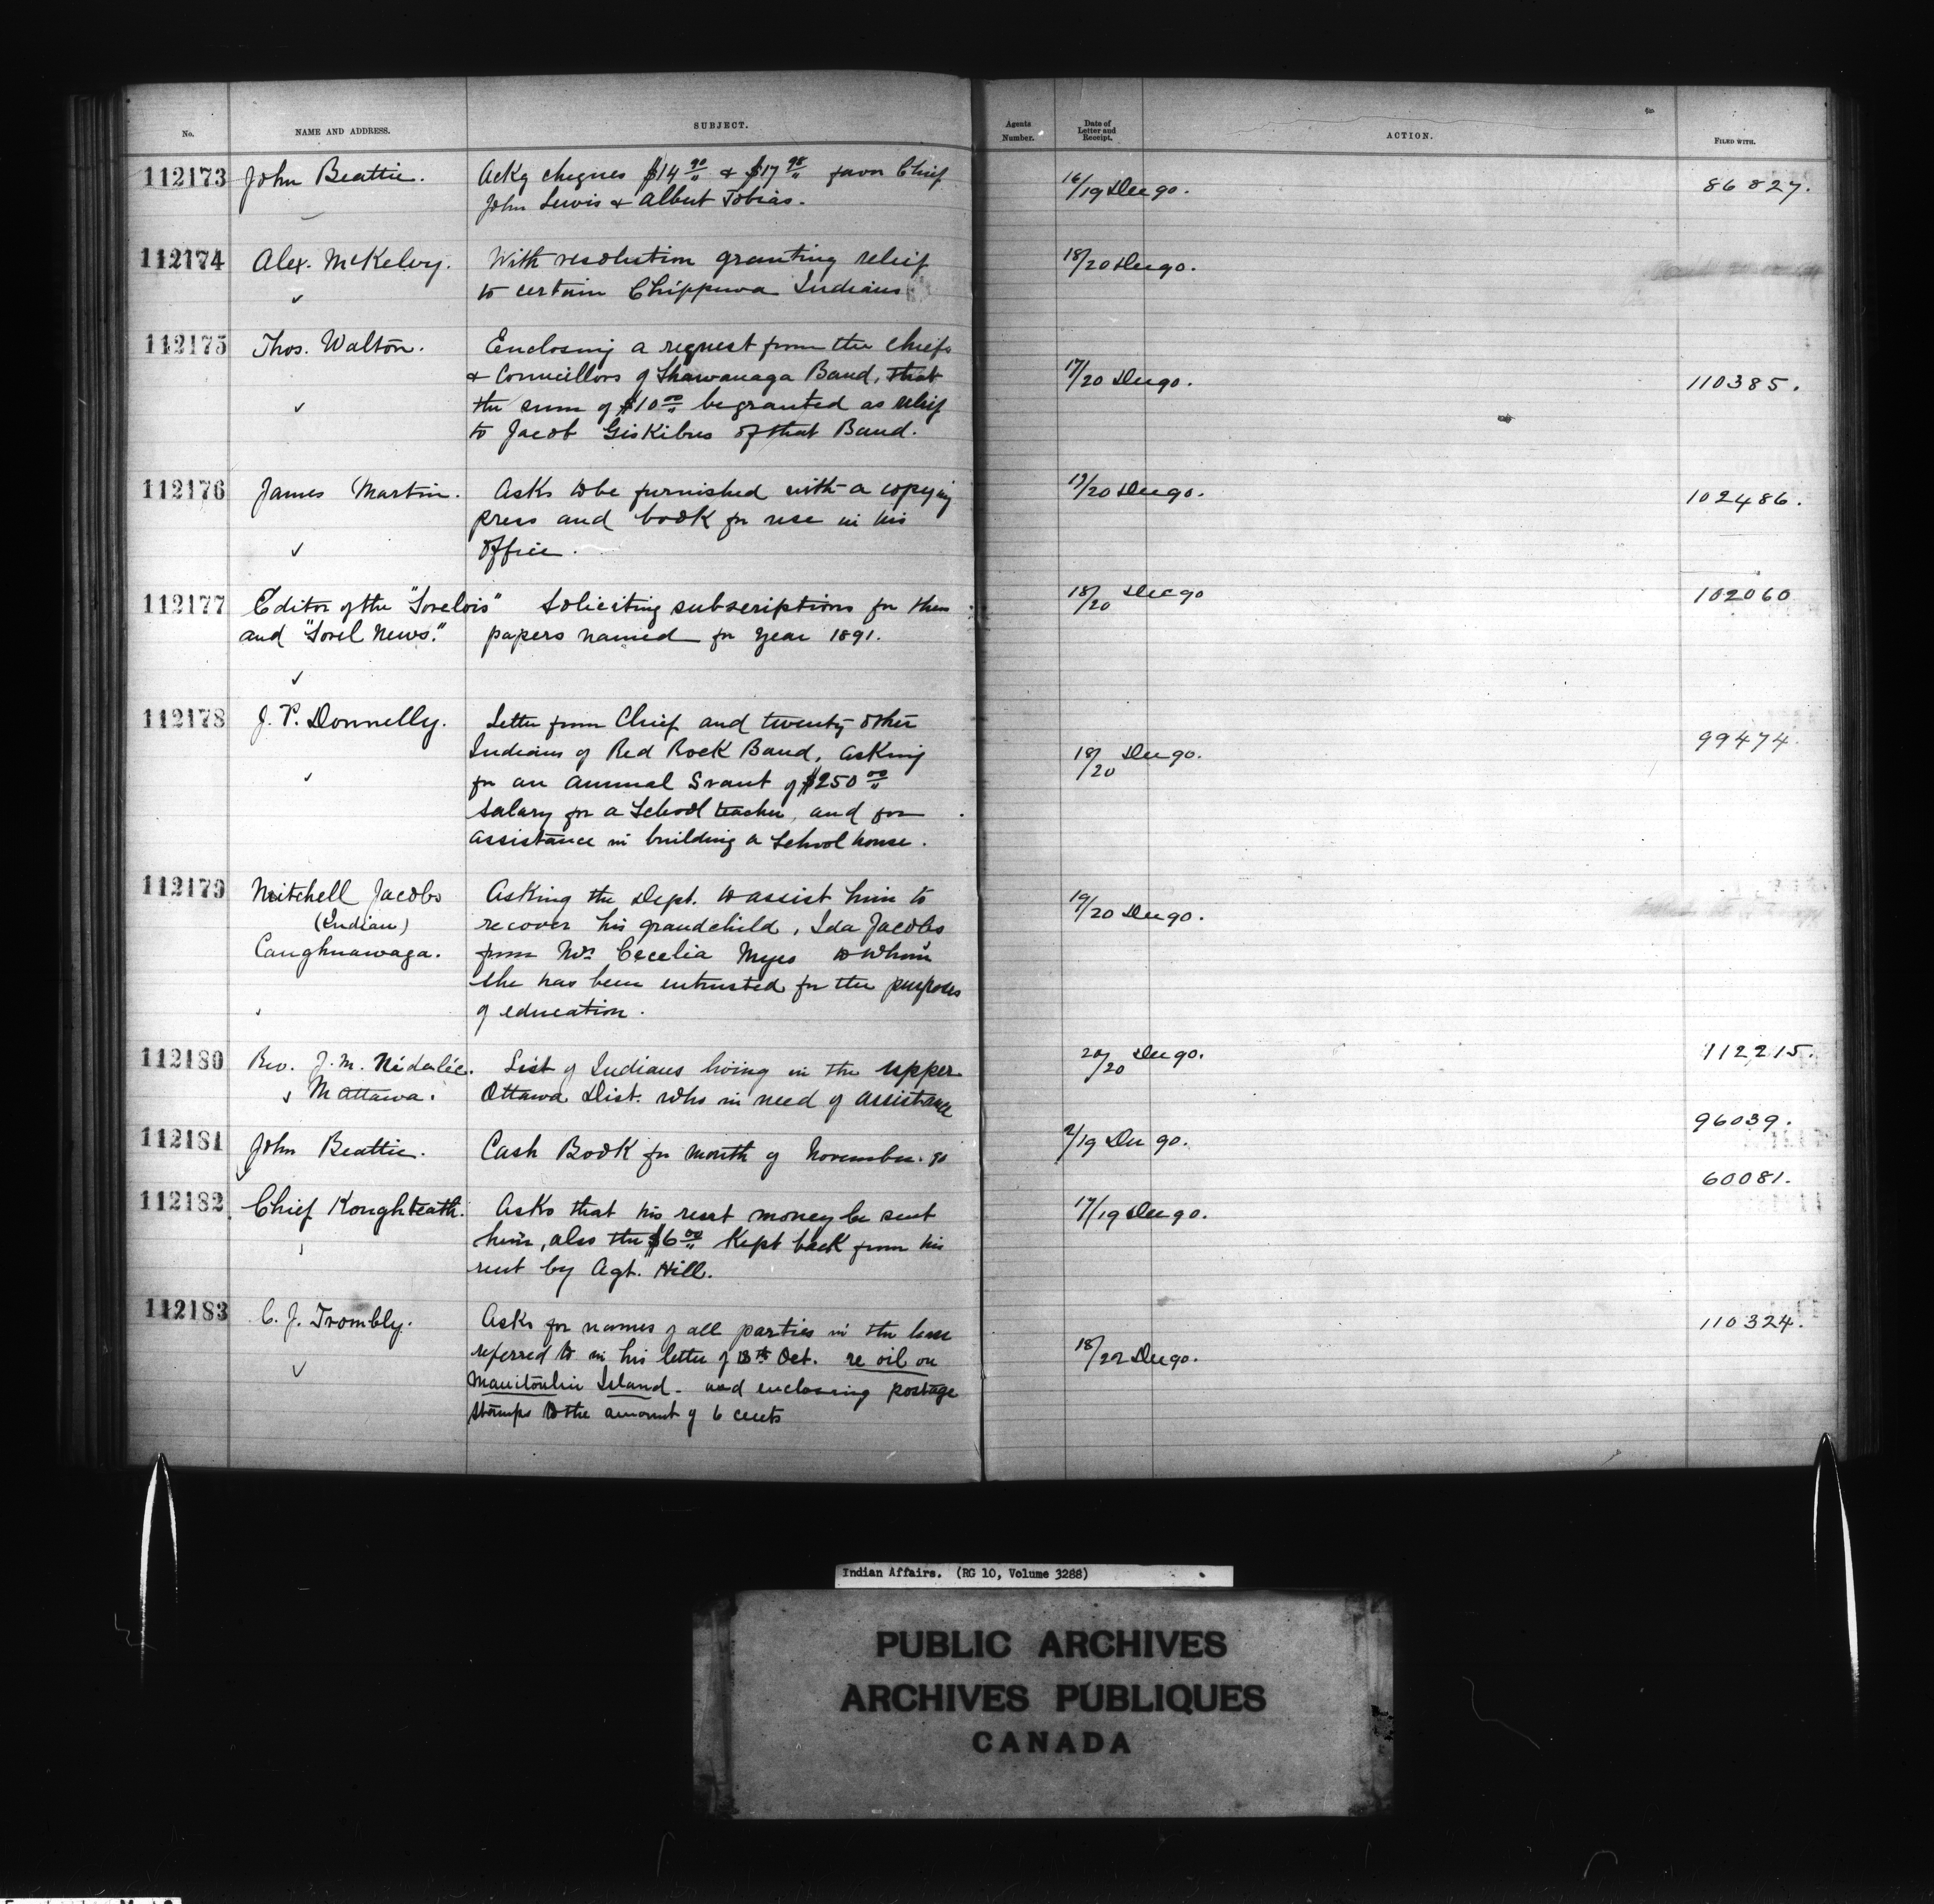 No. NAME AND ADDRESS. SUBJECT. Agents Number. Date of Letter and Receipt. ACTION. FILED WITH.
112173 John Beattie. Ackg cheques $14 90 & $17 98 favor Chief 16/19 Dec 90. 86827.
John Lewis & Albert Tobias.
112174 Alex. McKelvy. With resolution granting relief 18/20 Dec 90.
to certain Chippewa Indians
112175 Thos. Walton. Enclosing a request from the chiefs
& Councillors of Shawanaga Band, that 17/20 Dec 90. 110385.
the sum of $10 00 be granted as relief
to Jacob Giskibus of that Band.
112176 James Martin. Asks to be furnished with a copying 19/20 Dec 90. 102486.
press and book for use in his
office.
112177 Editor of the "Sorelois" Soliciting subscriptions for them 18/20 Dec 90 102060
and "Sorel News." papers named for year 1891.
112178 J. P. Donnelly. Letter from Chief and twenty other 99474.
Indians of Red Rock Band, asking 18/20 Dec 90.
for an annual Grant of $250 00
salary for a School teacher, and for
assistance in building a School house.
112179 Mitchell Jacobs Asking the Dept. to assist him to 19/20 Dec 90.
(Indian) recover his grandchild, Ida Jacobs
Caughnawaga. from Mrs Cecelia Myes to whom
she has been entrusted for the purposes
of education.
112180 Rev. J. M. Nédelèc. List of Indians living in the upper 20/20 Dec 90. 112215.
Mattawa. Ottawa Dist. who in need of assistance
112181 John Beattie. Cash Book for month of November. 90 2/19 Dec 90. 96039.
112182 Chief Koughteath. Asks that his rent money be sent 17/19 Dec 90. 60081.
him, also the $6 00 kept back from his
rent by Agt. Hill.
112183 C. J. Trombly. Asks for names of all parties in the lease 110324.
referred to in his letter of 13th Oct. re oil on 18/22 Dec 90.
Manitoulin Island - and enclosing postage
stamps to the amount of 6 cents
Indian Affairs. (RG 10, Volume 3288)
PUBLIC ARCHIVES
ARCHIVES PUBLIQUES
CANADA